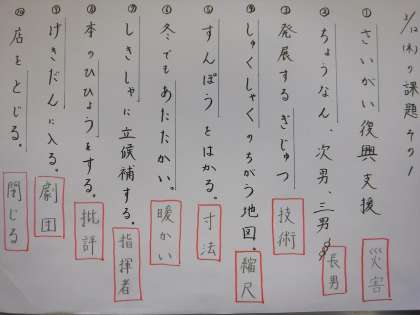 2/12(木)の課題その1
① さいがい復興支援
災害
② ちょうなん、次男、三男
長男
③ 発展するぎじゅつ
技術
④ しゅくしゃくのちがう地図。
縮尺
⑤ すんぽうをはかる。
寸法
⑥ 冬でもあたたかい。
暖かい
⑦ しきしゃに立候補する。
指揮者
⑧ 本のひひょうをする。
批評
⑨ げきだんに入る。
劇団
⑩ 店をとじる。
閉じる